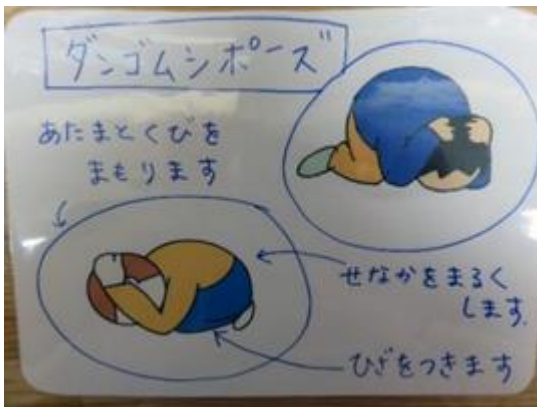 ダンゴムシポーズ
あたまとくびを
まもります
せなかをまるく
します.
ひざをつきます